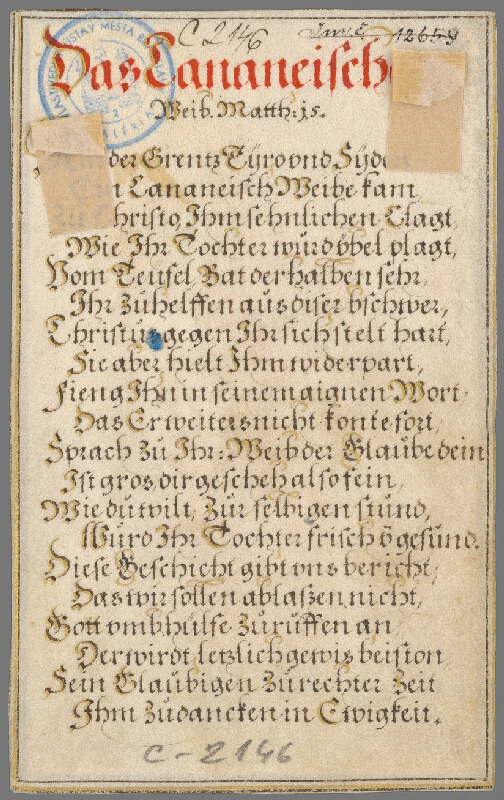 C 2146 Inv. č. 12659
Das Cananeisch
Weib. Matth: 15.
der Grentz Tyro vnd Sydon
Cananeisch Weibe kam
Christo, Ihm sehnlichen Clagt,
Wie Ihr Tochter würd vbel plagt,
Vom Teufel, Bat derhalben sehr,
Ihr Zuhelffen aus diser bschwer,
Christus gegen Ihr sich stelt hart,
Sie aber hielt Ihm widerpart,
Fieng Ihn in seinem aignen Wort,
Das Er weiters nicht konte fort,
Sprach Zu Ihr: Weib der Glaube dein
Ist gros, dir gescheh also fein,
Wie du wilt, Zur selbigen stund,
Wurd Ihr Tochter frisch v̄ gesund.
Diese Geschicht gibt vns bericht,
Das wir sollen ablaszen nicht,
Gott vmb hülfe Zuruffen an,
Der wirdt letzlich gewis beiston
Sein Glaubigen Zu rechter Zeit
Ihm Zudancken in Ewigkeit.
C-2146